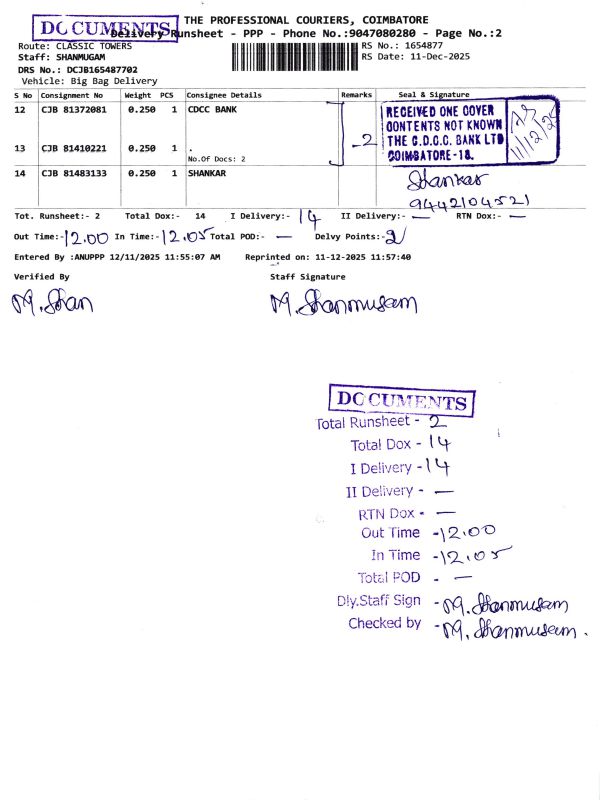 DOCUMENTS
THE PROFESSIONAL COURIERS, COIMBATORE
Delivery Runsheet - PPP - Phone No.:9047080280 - Page No.:2
Route: CLASSIC TOWERS
RS No.: 1654877
Staff: SHANMUGAM
RS Date: 11-Dec-2025
DRS No.: DCJB165487702
Vehicle: Big Bag Delivery
S No Consignment No Weight PCS Consignee Details Remarks Seal & Signature
12 CJB 81372081 0.250 1 CDCC BANK
13 CJB 81410221 0.250 1 .
No.Of Docs: 2
2
RECEIVED ONE COVER
CONTENTS NOT KNOWN
THE C.D.C.C. BANK LTD
COIMBATORE-18.
11/12/25
14 CJB 81483133 0.250 1 SHANKAR
Shankar
9442104521
Tot. Runsheet:- 2 Total Dox:- 14 I Delivery:- 14 II Delivery:- — RTN Dox:- —
Out Time:- 12.00 In Time:- 12.05 Total POD:- — Delvy Points:- 2
Entered By :ANUPPP 12/11/2025 11:55:07 AM Reprinted on: 11-12-2025 11:57:40
Verified By Staff Signature
M. Shan M. Shanmugam
DOCUMENTS
Total Runsheet - 2
Total Dox - 14
I Delivery - 14
II Delivery - —
RTN Dox - —
Out Time - 12.00
In Time - 12.05
Total POD - —
Dly.Staff Sign - M. Shanmugam
Checked by - M. Shanmugam.